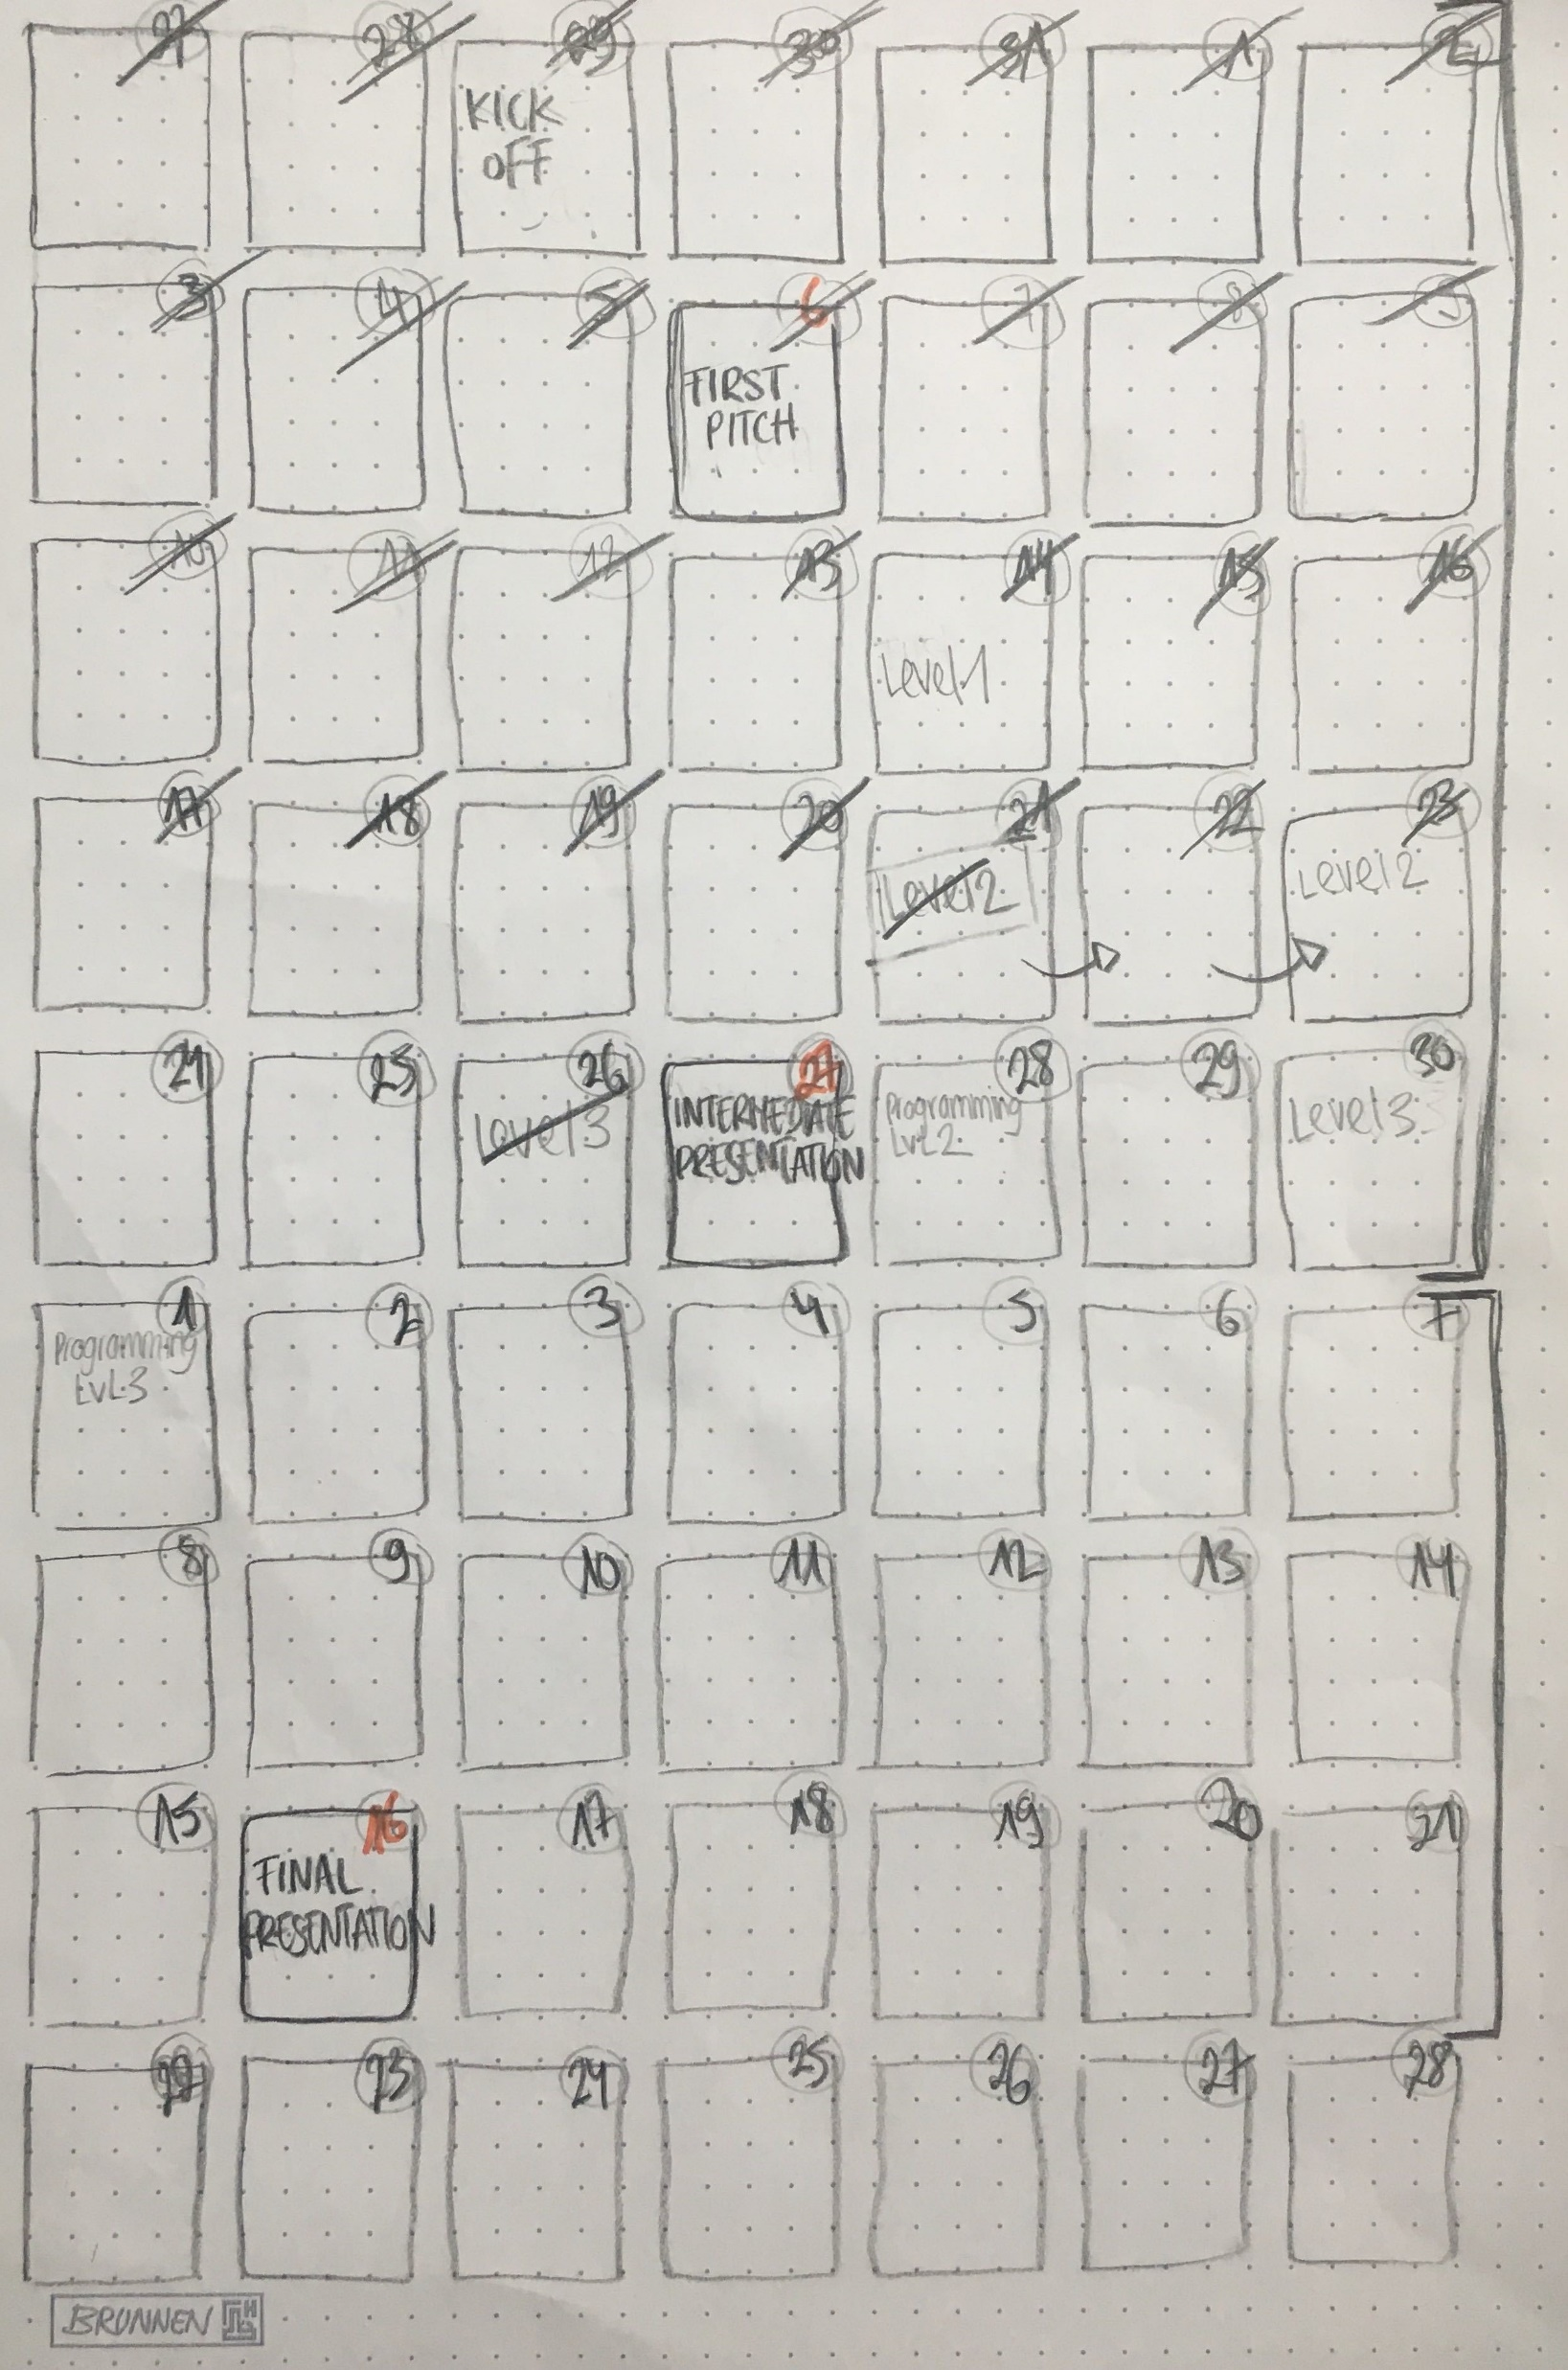 27 28 29 30 31 1 2
KICK
OFF
3 4 5 6 7 8 9
FIRST
PITCH
10 11 12 13 14 15 16
Level 1
17 18 19 20 21 22 23
Level 2
Level 2
24 25 26 27 28 29 30
Level 3
INTERMEDIATE
PRESENTATION
Programming
LVL 2
Level 3
1 2 3 4 5 6 7
Programming
LVL 3
8 9 10 11 12 13 14
15 16 17 18 19 20 21
FINAL
PRESENTATION
22 23 24 25 26 27 28
BRUNNEN